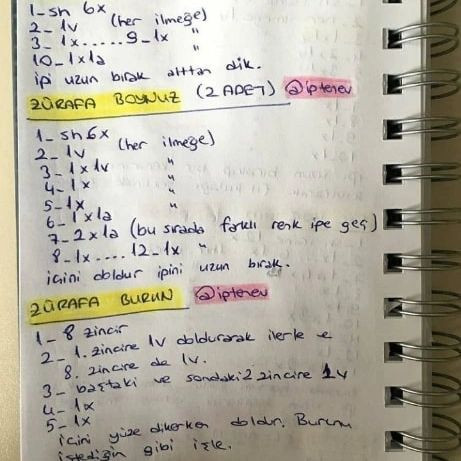 1- sh 6x
2- 1v (her ilmeğe)
3- 1x.....9-1x "
10- 1x1a "
ipi uzun bırak alttan dik.
ZÜRAFA BOYNUZ (2 ADET) @iptenev
1- sh 6x
2- 1v (her ilmeğe)
3- 1x1v "
4- 1x "
5- 1x "
6- 1x1a "
7- 2x1a (bu sırada farklı renk ipe geç)
8- 1x.....12-1x "
içini doldur ipini uzun bırak.
ZÜRAFA BURUN @iptenev
1- 8 zincir
2- 1. zincire 1v doldurarak ilerle
8. zincire de 1v.
3- baştaki ve sondaki 2 zincire 1v
4- 1x
5- 1x
içini yüze dikerken doldur. Burunu
istediğin gibi işle.